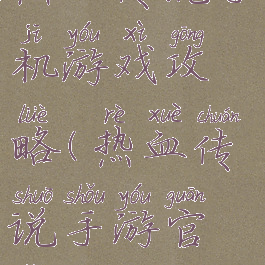 jī yóu xì gōng
机游戏攻
lüè rè xuè chuán
略(热血传
shuō shǒu yóu guān
说手游官